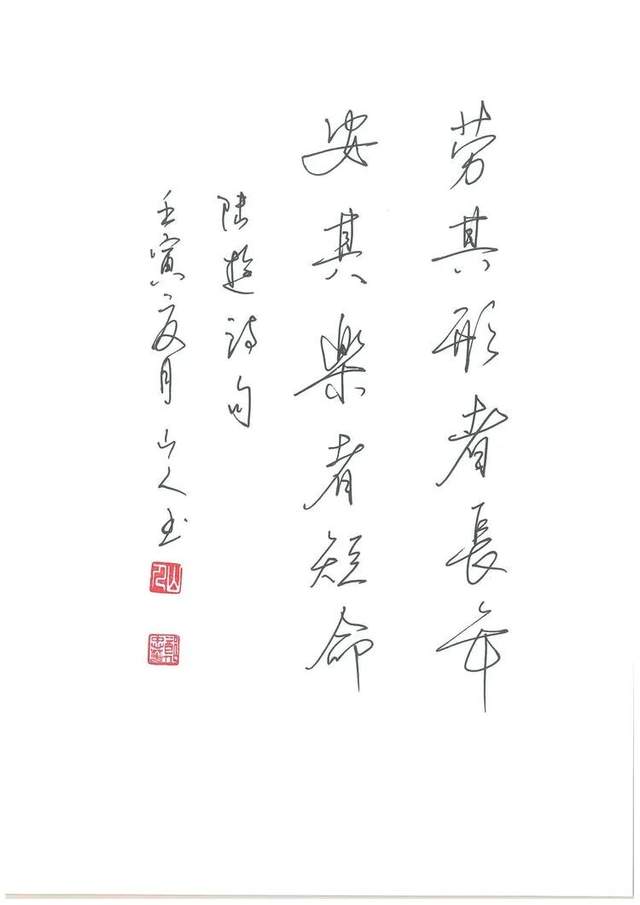 劳其形者長年
安其樂者短命
陸遊詩句
壬寅夏月山人书
山人